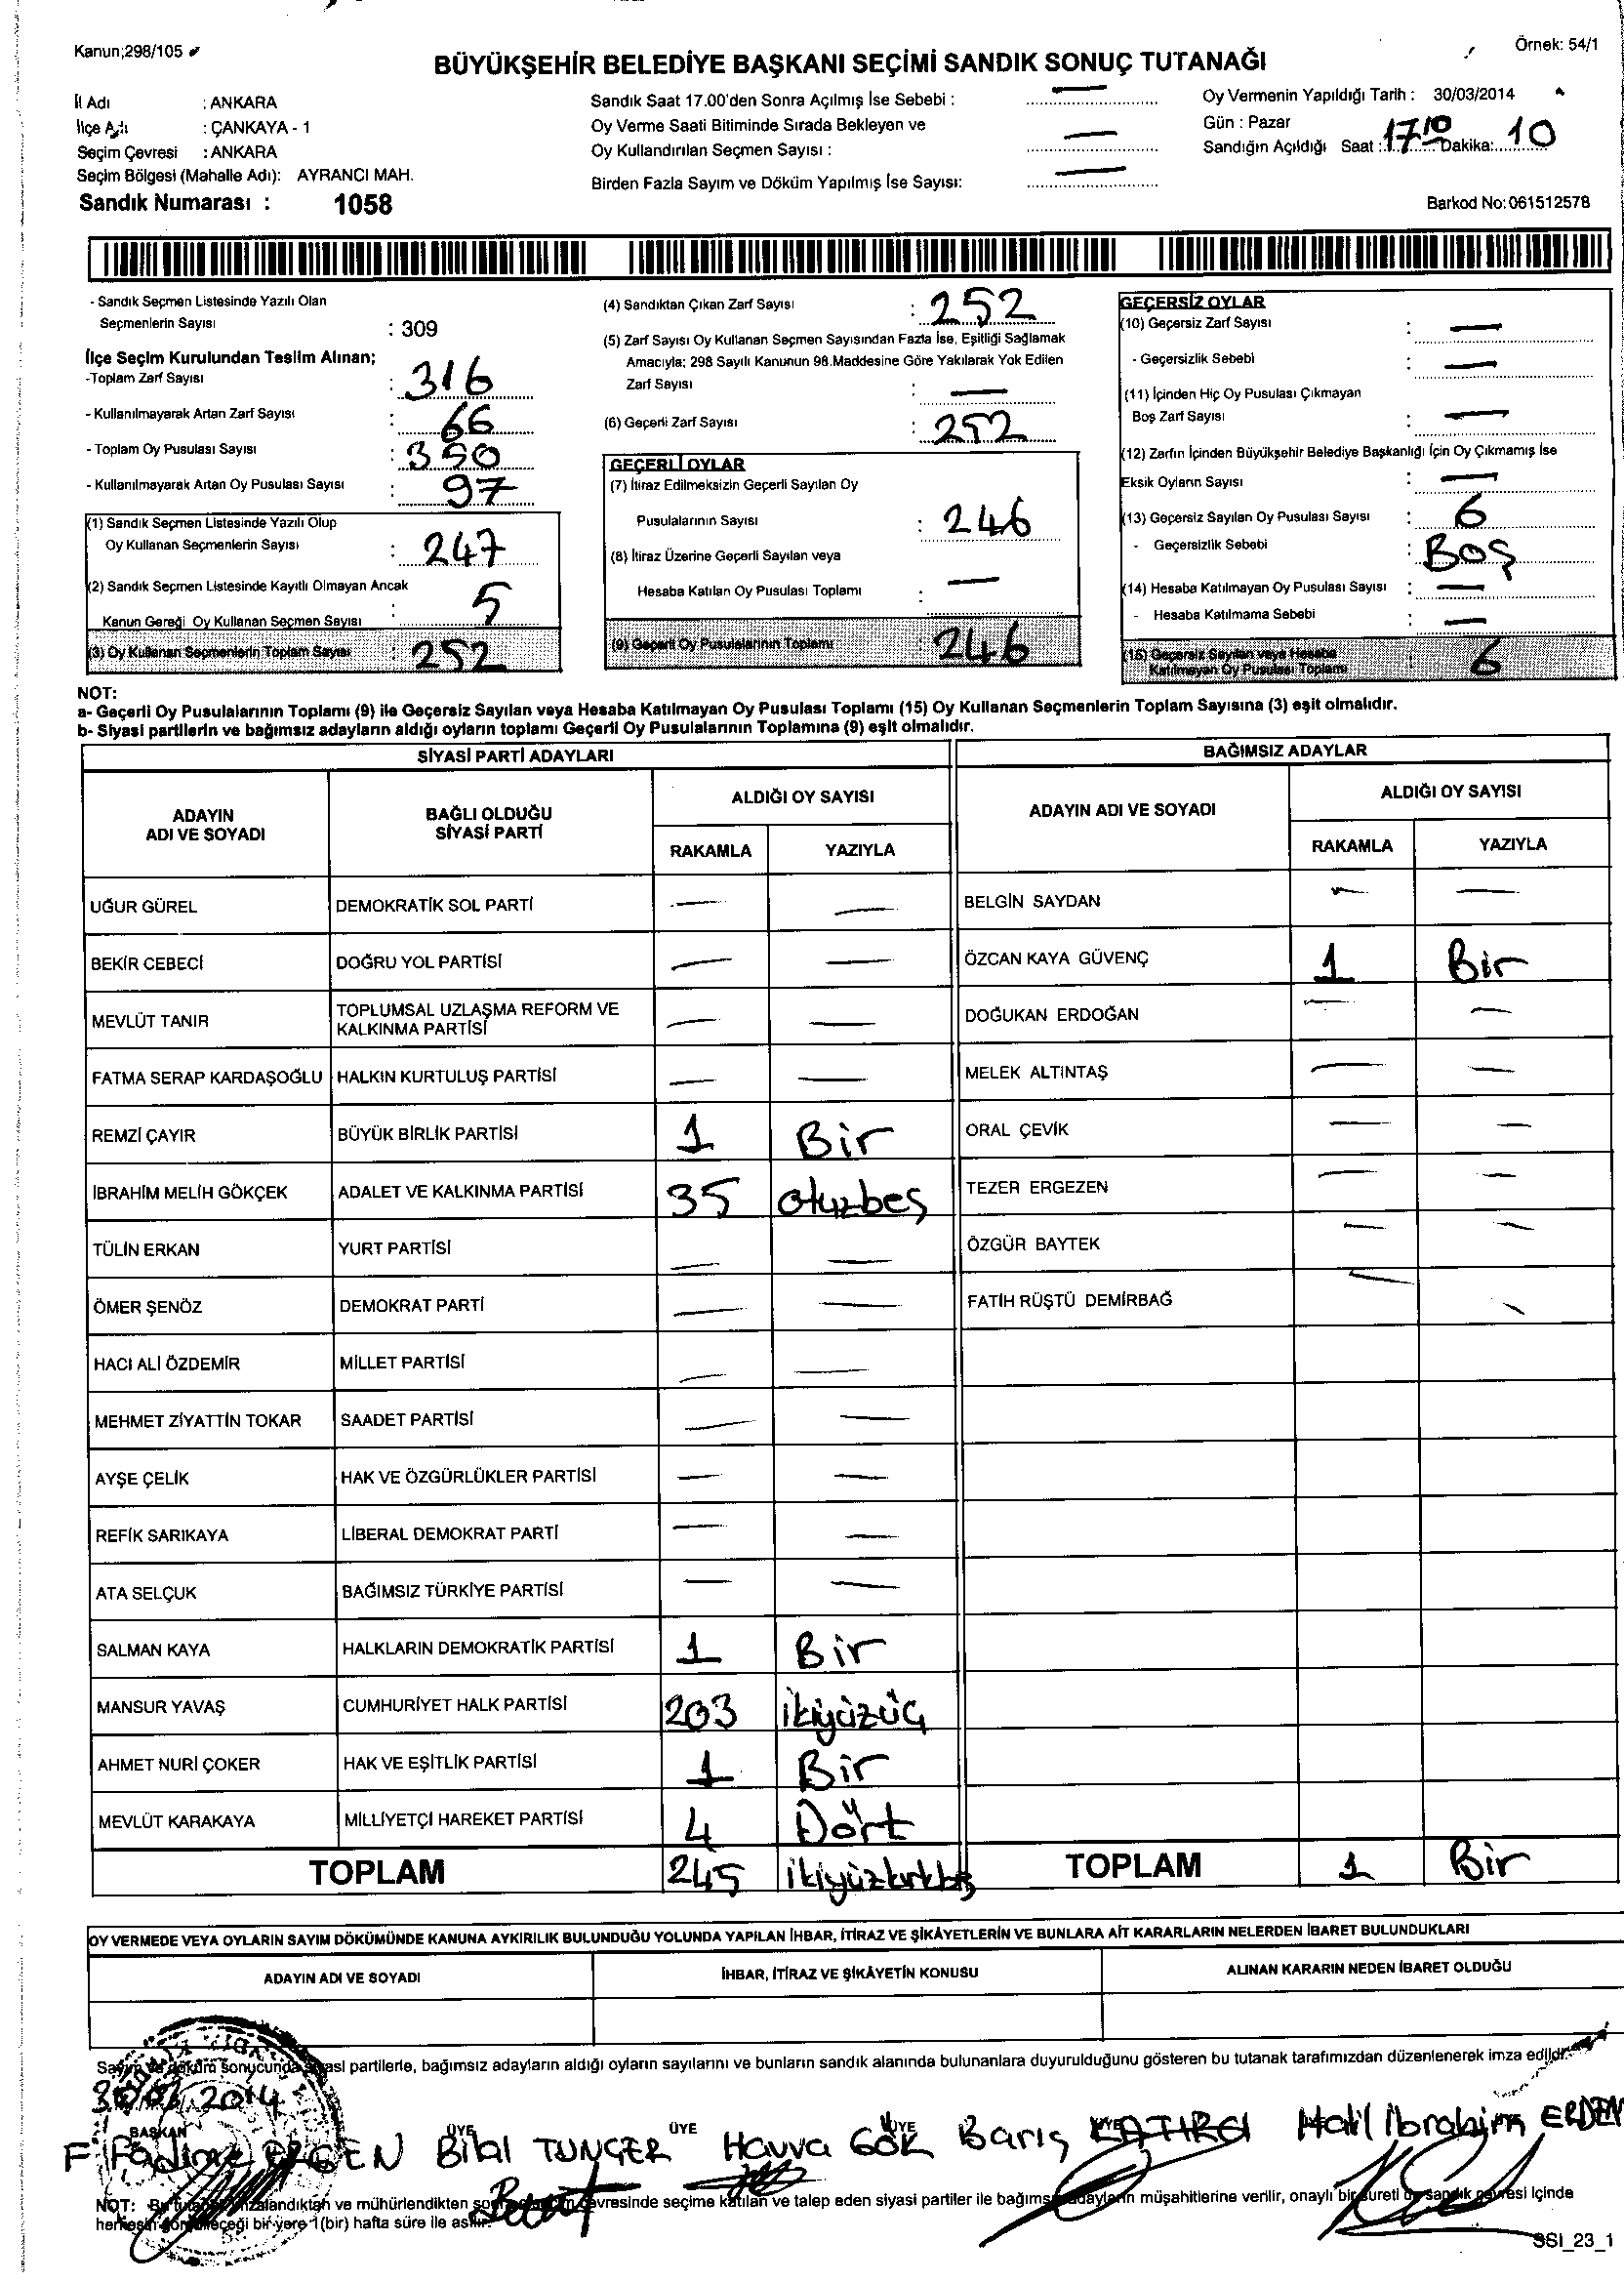 Kanun;298/105
Örnek: 54/1
BÜYÜKŞEHİR BELEDİYE BAŞKANI SEÇİMİ SANDIK SONUÇ TUTANAĞI
İl Adı : ANKARA
İlçe Adı : ÇANKAYA - 1
Seçim Çevresi : ANKARA
Seçim Bölgesi (Mahalle Adı): AYRANCI MAH.
Sandık Numarası : 1058
Sandık Saat 17.00'den Sonra Açılmış İse Sebebi : —
Oy Verme Saati Bitiminde Sırada Bekleyen ve
Oy Kullandırılan Seçmen Sayısı : —
Birden Fazla Sayım ve Döküm Yapılmış İse Sayısı: —
Oy Vermenin Yapıldığı Tarih : 30/03/2014
Gün : Pazar
Sandığın Açıldığı Saat : 17 10 Dakika: 10
Barkod No: 061512578
- Sandık Seçmen Listesinde Yazılı Olan
Seçmenlerin Sayısı : 309
İlçe Seçim Kurulundan Teslim Alınan;
-Toplam Zarf Sayısı : 316
- Kullanılmayarak Artan Zarf Sayısı : 66
- Toplam Oy Pusulası Sayısı : 350
- Kullanılmayarak Artan Oy Pusulası Sayısı : 97
(1) Sandık Seçmen Listesinde Yazılı Olup
Oy Kullanan Seçmenlerin Sayısı : 247
(2) Sandık Seçmen Listesinde Kayıtlı Olmayan Ancak
Kanun Gereği Oy Kullanan Seçmen Sayısı : 5
(3) Oy Kullanan Seçmenlerin Toplam Sayısı : 252
(4) Sandıktan Çıkan Zarf Sayısı : 252
(5) Zarf Sayısı Oy Kullanan Seçmen Sayısından Fazla İse, Eşitliği Sağlamak
Amacıyla; 298 Sayılı Kanunun 98.Maddesine Göre Yakılarak Yok Edilen
Zarf Sayısı : —
(6) Geçerli Zarf Sayısı : 252
GEÇERLİ OYLAR
(7) İtiraz Edilmeksizin Geçerli Sayılan Oy
Pusulalarının Sayısı : 246
(8) İtiraz Üzerine Geçerli Sayılan veya
Hesaba Katılan Oy Pusulası Toplamı : —
(9) Geçerli Oy Pusulalarının Toplamı : 246
GEÇERSİZ OYLAR
(10) Geçersiz Zarf Sayısı : —
- Geçersizlik Sebebi : —
(11) İçinden Hiç Oy Pusulası Çıkmayan
Boş Zarf Sayısı : —
(12) Zarfın İçinden Büyükşehir Belediye Başkanlığı İçin Oy Çıkmamış İse
Eksik Oyların Sayısı : —
(13) Geçersiz Sayılan Oy Pusulası Sayısı : 6
- Geçersizlik Sebebi : BOŞ
(14) Hesaba Katılmayan Oy Pusulası Sayısı : —
- Hesaba Katılmama Sebebi : —
(15) Geçersiz Sayılan veya Hesaba
Katılmayan Oy Pusulası Toplamı : 6
NOT:
a- Geçerli Oy Pusulalarının Toplamı (9) ile Geçersiz Sayılan veya Hesaba Katılmayan Oy Pusulası Toplamı (15) Oy Kullanan Seçmenlerin Toplam Sayısına (3) eşit olmalıdır.
b- Siyasi partilerin ve bağımsız adayların aldığı oyların toplamı Geçerli Oy Pusulalarının Toplamına (9) eşit olmalıdır.
SİYASİ PARTİ ADAYLARI
ADAYIN ADI VE SOYADI
BAĞLI OLDUĞU SİYASİ PARTİ
ALDIĞI OY SAYISI
RAKAMLA YAZIYLA
UĞUR GÜREL DEMOKRATİK SOL PARTİ — —
BEKİR CEBECİ DOĞRU YOL PARTİSİ — —
MEVLÜT TANIR TOPLUMSAL UZLAŞMA REFORM VE KALKINMA PARTİSİ — —
FATMA SERAP KARDAŞOĞLU HALKIN KURTULUŞ PARTİSİ — —
REMZİ ÇAYIR BÜYÜK BİRLİK PARTİSİ 1 Bir
İBRAHİM MELİH GÖKÇEK ADALET VE KALKINMA PARTİSİ 35 otuzbeş
TÜLİN ERKAN YURT PARTİSİ — —
ÖMER ŞENÖZ DEMOKRAT PARTİ — —
HACI ALİ ÖZDEMİR MİLLET PARTİSİ — —
MEHMET ZİYATTİN TOKAR SAADET PARTİSİ — —
AYŞE ÇELİK HAK VE ÖZGÜRLÜKLER PARTİSİ — —
REFİK SARIKAYA LİBERAL DEMOKRAT PARTİ — —
ATA SELÇUK BAĞIMSIZ TÜRKİYE PARTİSİ — —
SALMAN KAYA HALKLARIN DEMOKRATİK PARTİSİ 1 Bir
MANSUR YAVAŞ CUMHURİYET HALK PARTİSİ 203 ikiyüzüç
AHMET NURİ ÇOKER HAK VE EŞİTLİK PARTİSİ 1 Bir
MEVLÜT KARAKAYA MİLLİYETÇİ HAREKET PARTİSİ 4 Dört
TOPLAM 245 ikiyüzkırkbş
BAĞIMSIZ ADAYLAR
ADAYIN ADI VE SOYADI
ALDIĞI OY SAYISI
RAKAMLA YAZIYLA
BELGİN SAYDAN — —
ÖZCAN KAYA GÜVENÇ 1 Bir
DOĞUKAN ERDOĞAN — —
MELEK ALTINTAŞ — —
ORAL ÇEVİK — —
TEZER ERGEZEN — —
ÖZGÜR BAYTEK — —
FATİH RÜŞTÜ DEMİRBAĞ — —
TOPLAM 1 Bir
OY VERMEDE VEYA OYLARIN SAYIM DÖKÜMÜNDE KANUNA AYKIRILIK BULUNDUĞU YOLUNDA YAPILAN İHBAR, İTİRAZ VE ŞİKÂYETLERİN VE BUNLARA AİT KARARLARIN NELERDEN İBARET BULUNDUKLARI
ADAYIN ADI VE SOYADI
İHBAR, İTİRAZ VE ŞİKÂYETİN KONUSU
ALINAN KARARIN NEDEN İBARET OLDUĞU
Sayım ve döküm sonucunda siyasi partilerle, bağımsız adayların aldığı oyların sayılarını ve bunların sandık alanında bulunanlara duyurulduğunu gösteren bu tutanak tarafımızdan düzenlenerek imza edildi.
30/03/2014
BAŞKAN ÜYE ÜYE ÜYE ÜYE
Fadime ERGEN Bilal TUNÇER Havva GÖK Barış KATIRCI Halil İbrahim ERDEM
NOT: Bu tutanak imzalandıktan ve mühürlendikten sonra seçim çevresinde seçime katılan ve talep eden siyasi partiler ile bağımsız adayların müşahitlerine verilir, onaylı bir sureti de sandık çevresi içinde
herkesin görebileceği bir yere 1(bir) hafta süre ile asılır.
SSI_23_1